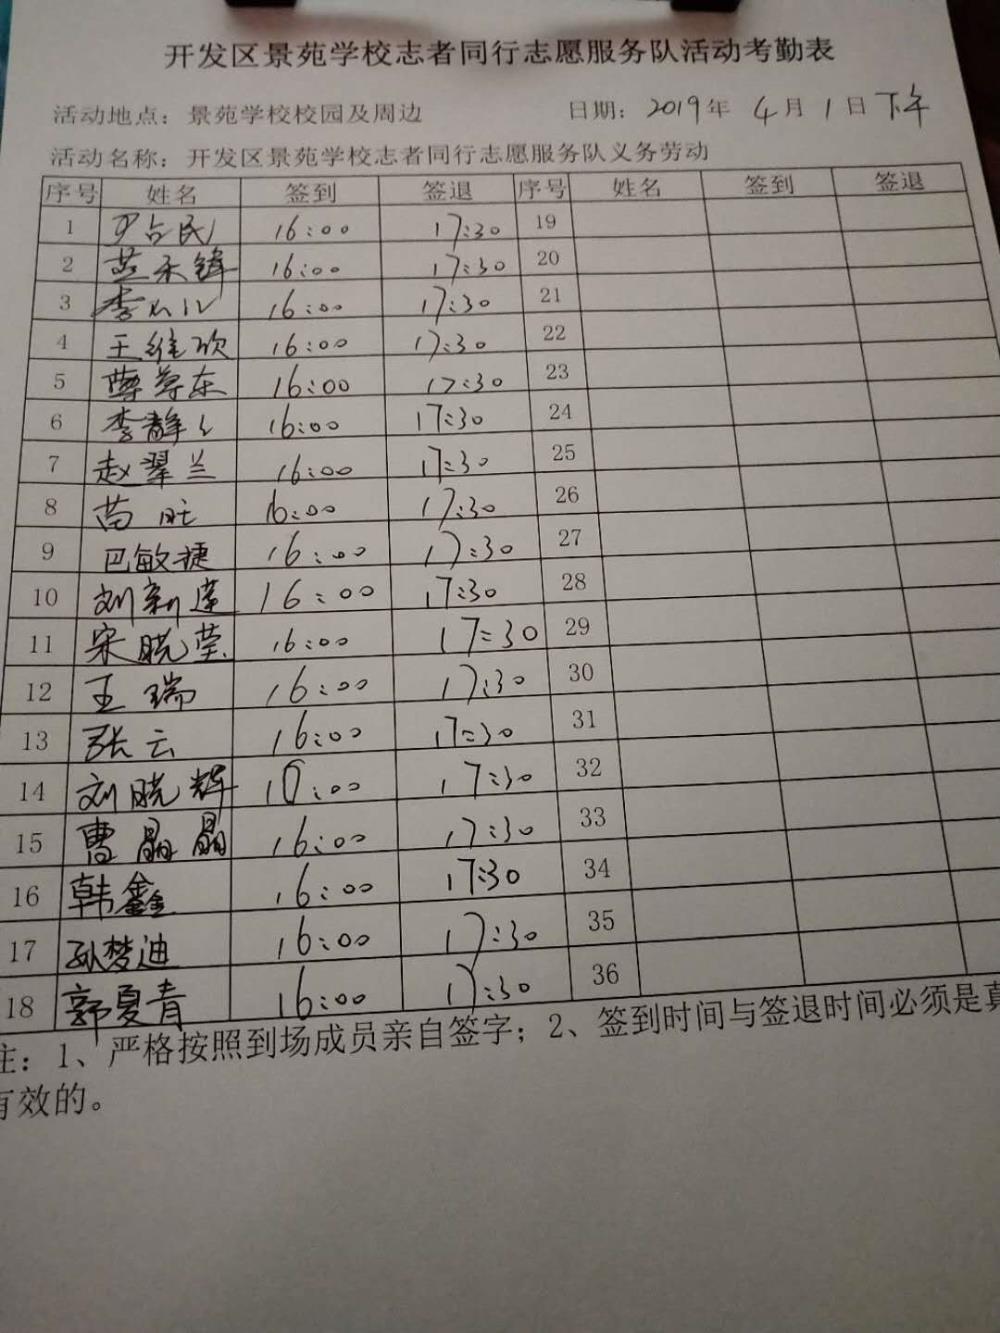 开发区景苑学校志者同行志愿服务队活动考勤表
活动地点：景苑学校校园及周边 日期：2019年 4月 1日下午
活动名称：开发区景苑学校志者同行志愿服务队义务劳动
序号 姓名 签到 签退 序号 姓名 签到 签退
1 尹占民 16:00 17:30 19
2 16:00 17:30 20
3 李 16:00 17:30 21
4 王维欣 16:00 17:30 22
5 东 16:00 17:30 23
6 李静 16:00 17:30 24
7 赵翠兰 16:00 17:30 25
8 苗旺 16:00 17:30 26
9 巴敏捷 16:00 17:30 27
10 刘新莲 16:00 17:30 28
11 宋晓莹 16:00 17:30 29
12 王瑞 16:00 17:30 30
13 张云 16:00 17:30 31
14 刘晓辉 :00 17:30 32
15 曹晶晶 16:00 17:30 33
16 韩鑫 16:00 17:30 34
17 孙梦迪 16:00 17:30 35
18 郭夏青 16:00 17:30 36
注：1、严格按照到场成员亲自签字；2、签到时间与签退时间必须是真
有效的。